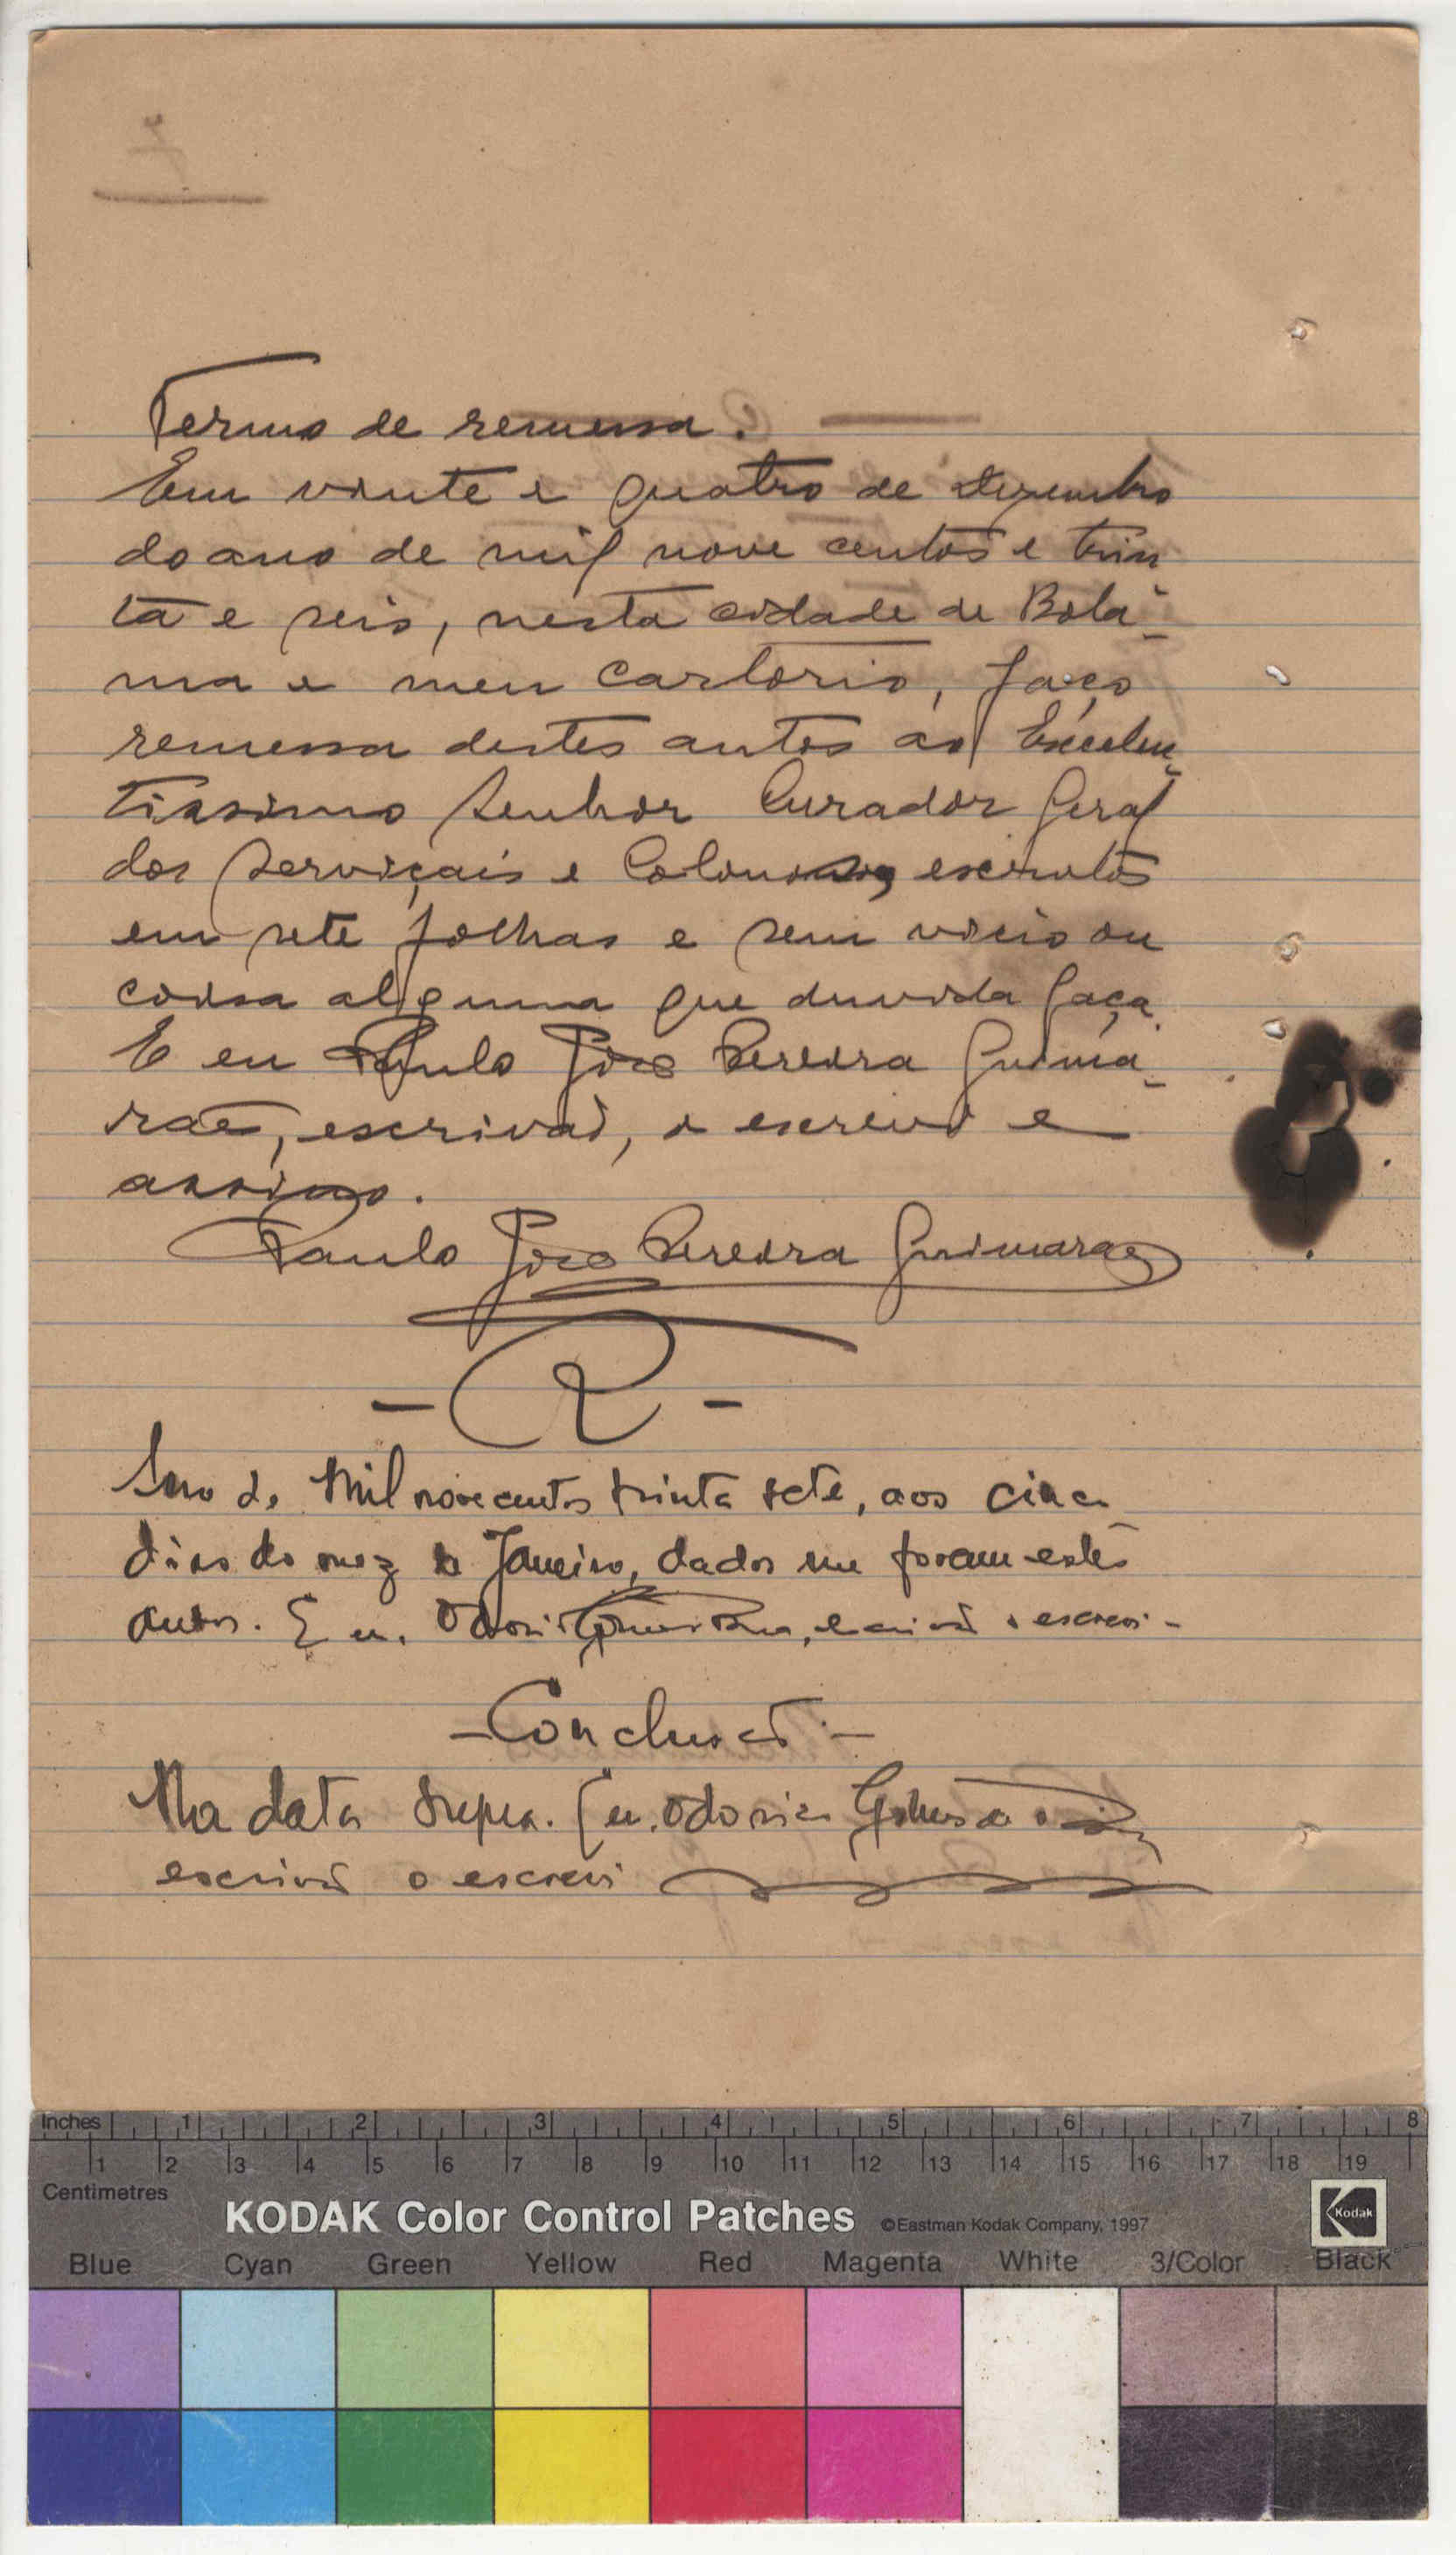 Termo de remessa.
Em vinte e quatro de dezembro
do ano de mil nove centos e trin
ta e seis, nesta cidade de Bolà-
ma e meu cartorio, faço
remessa destes autos ao Excelen-
tissimo Senhor Curador Geral
dos Serviçais e Colonos, escritos
em sete folhas e sem vicio ou
coisa alguma que duvida faça.
E eu Paulo José Pereira Guima-
rães, escrivão, o escrevi e
assino.
Paulo José Pereira Guimarães
Ano de Mil novecentos trinta sete, aos cinco
dias do mez de Janeiro, dados me foram estes
autos. E eu, escrivão o escrevi -
- Conclusão -
Na data supra. Eu, Gomes
escrivão o escrevi
Inches 1 2 3 4 5 6 7 8
1 2 3 4 5 6 7 8 9 10 11 12 13 14 15 16 17 18 19
Centimetres
KODAK Color Control Patches ©Eastman Kodak Company, 1997 Kodak
Blue Cyan Green Yellow Red Magenta White 3/Color Black